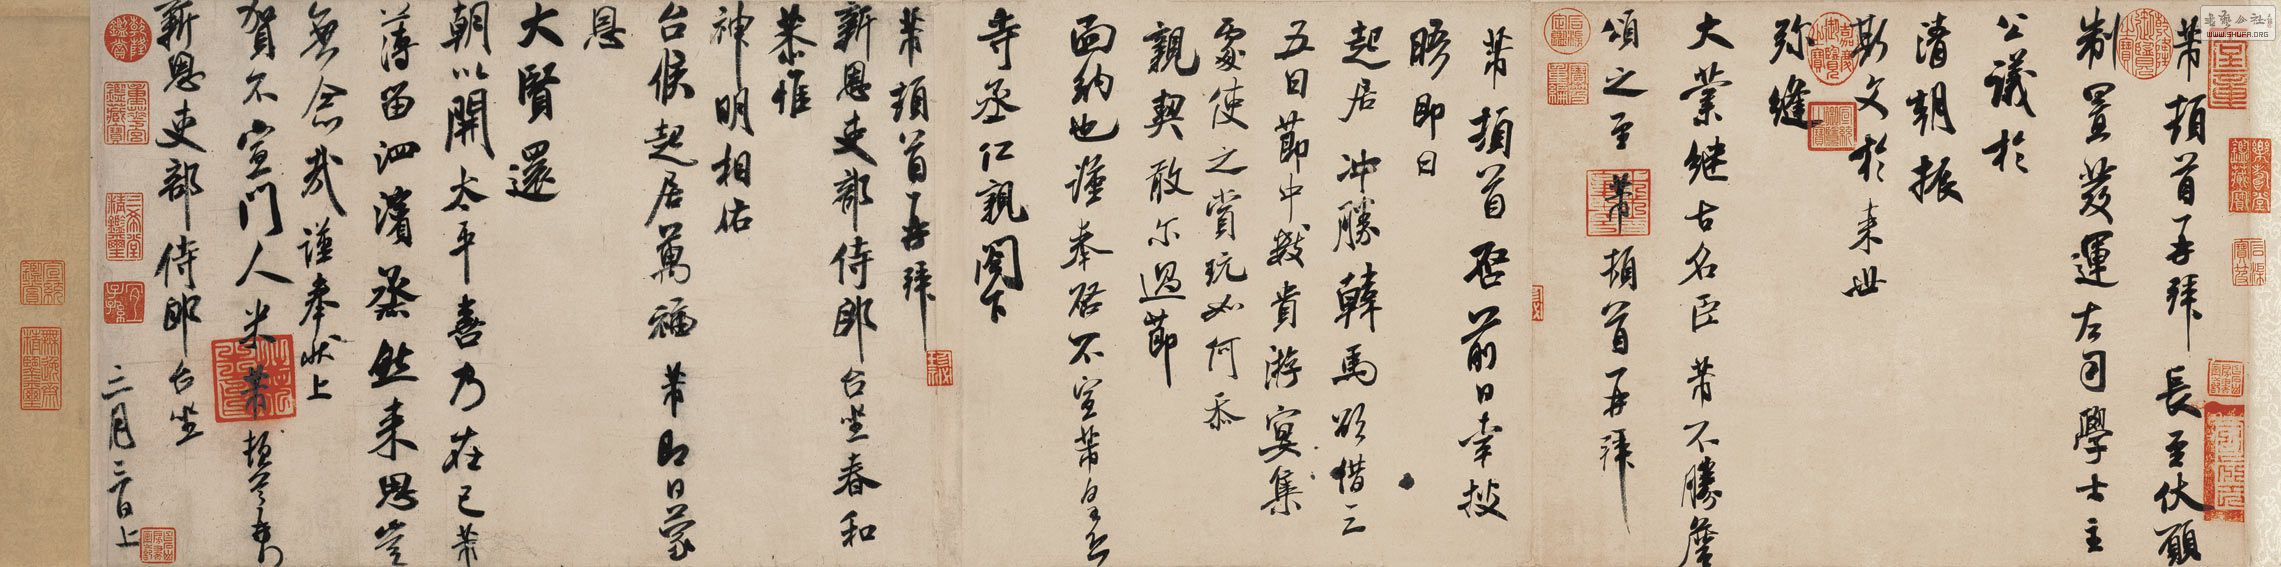 芾頓首再拜 長至伏願
制置發運左司學士主
公議於
清朝振
斯文於來世
弥縫
大業繼古名臣 芾不勝詹
頌之至 芾頓首再拜
芾頓首啓 前日幸披
晤即日
起居冲勝韓馬欲借三
五日節中數貴游宴集
處使之賞玩如何忝
親契敢尔過節
面納也謹奉啓不宣芾皇恐
寺丞仁親閣下
芾頓首再拜
新恩吏部侍郎台坐春和
恭惟
神明相佑
台候起居萬福 芾即日蒙
恩
大賢還
朝以開太平喜乃在己芾
薄留泗濱蒸然來思豈
無念哉謹奉狀上
賀不宣門人米芾頓首再
新恩吏部侍郎 台坐
二月二日上